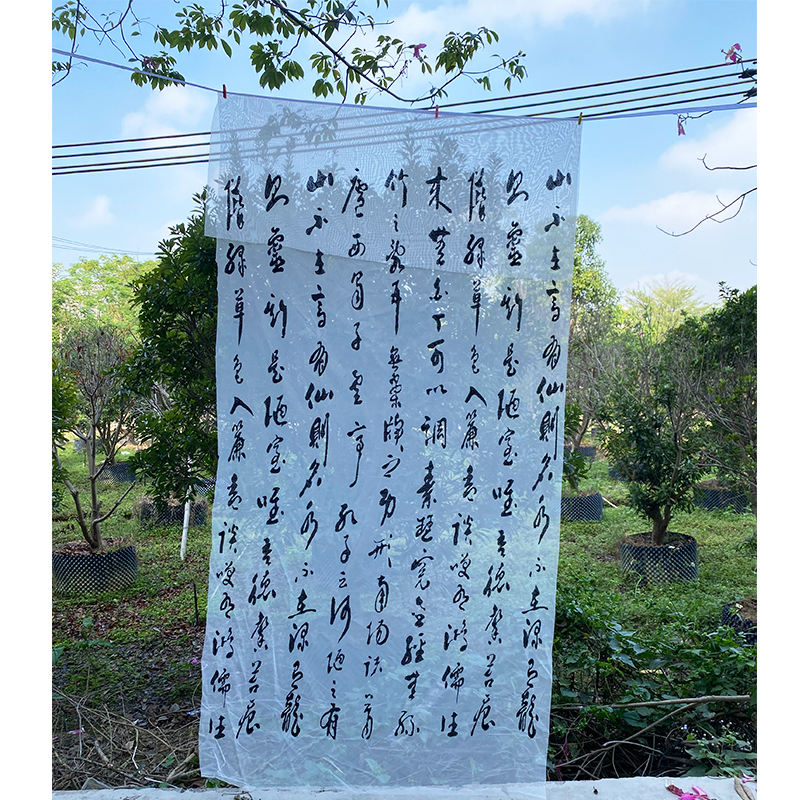 山不在高有仙則名水不在深有龍
則靈斯是陋室唯吾德馨苔痕
階綠草色入簾青談笑有鴻儒往
來無白丁可以調素琴閱金經無絲
竹之亂耳無案牘之勞形南陽諸葛
廬西蜀子雲亭孔子云何陋之有
山不在高有仙則名水不在深有龍
則靈斯是陋室唯吾德馨苔痕
階綠草色入簾青談笑有鴻儒往